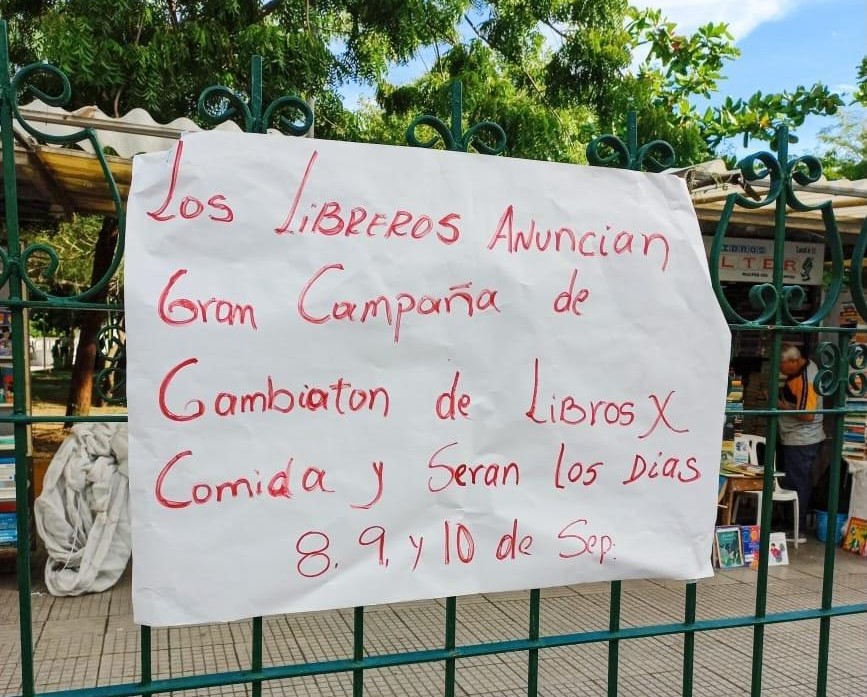 Los LiBREROS ANuncian
Gran Campaña de
Gambiaton de LiBros X
Comida y Seran los Dias
8, 9, y 10 de Sep.
LTER